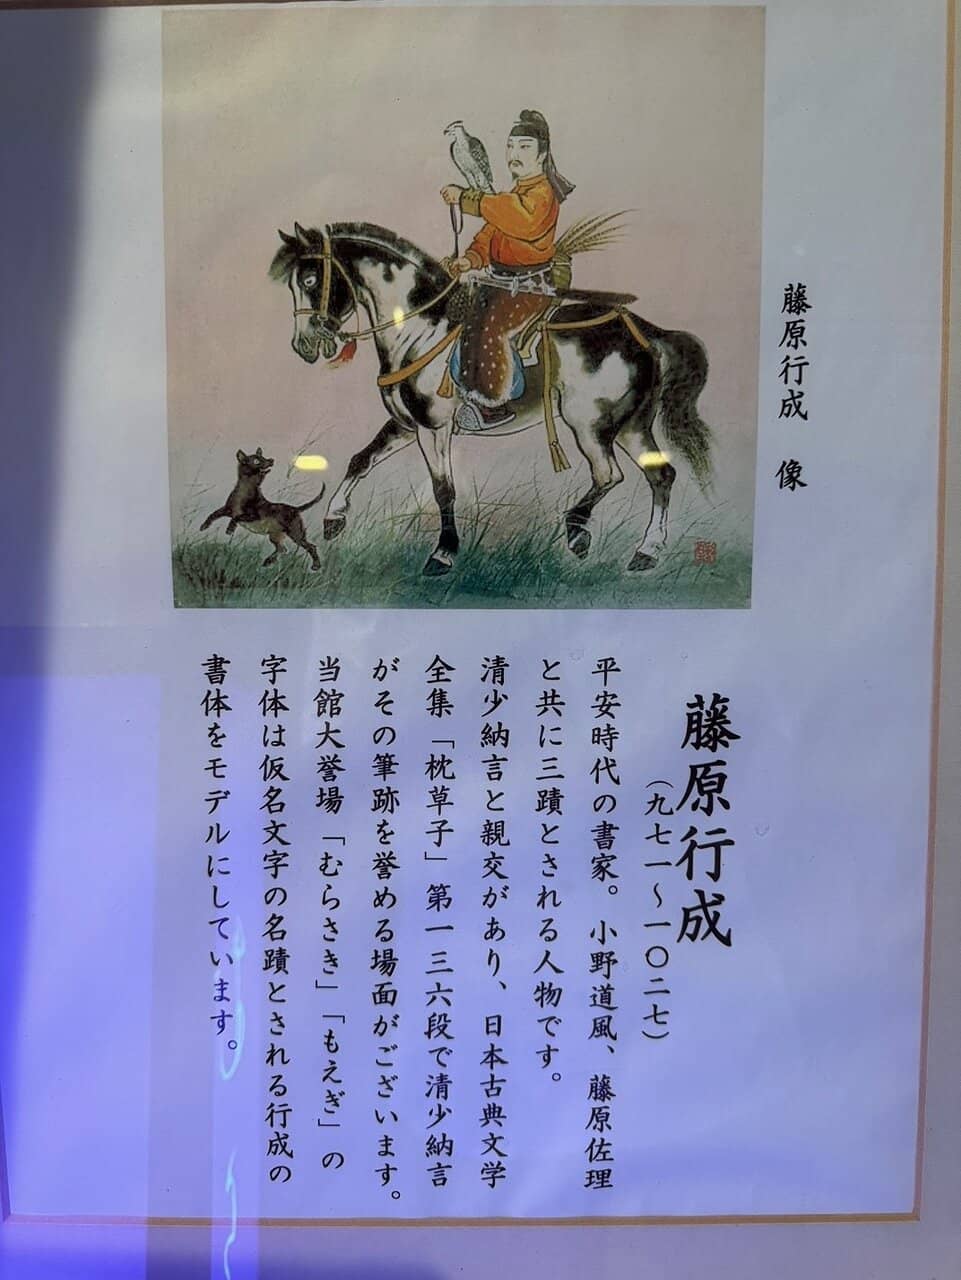 藤原行成　像
藤原行成
（九七一〜一〇二七）
平安時代の書家。小野道風、藤原佐理
と共に三蹟とされる人物です。
清少納言と親交があり、日本古典文学
全集「枕草子」第一三六段で清少納言
がその筆跡を誉める場面がございます。
当館大誉場「むらさき」「もえぎ」の
字体は仮名文字の名蹟とされる行成の
書体をモデルにしています。